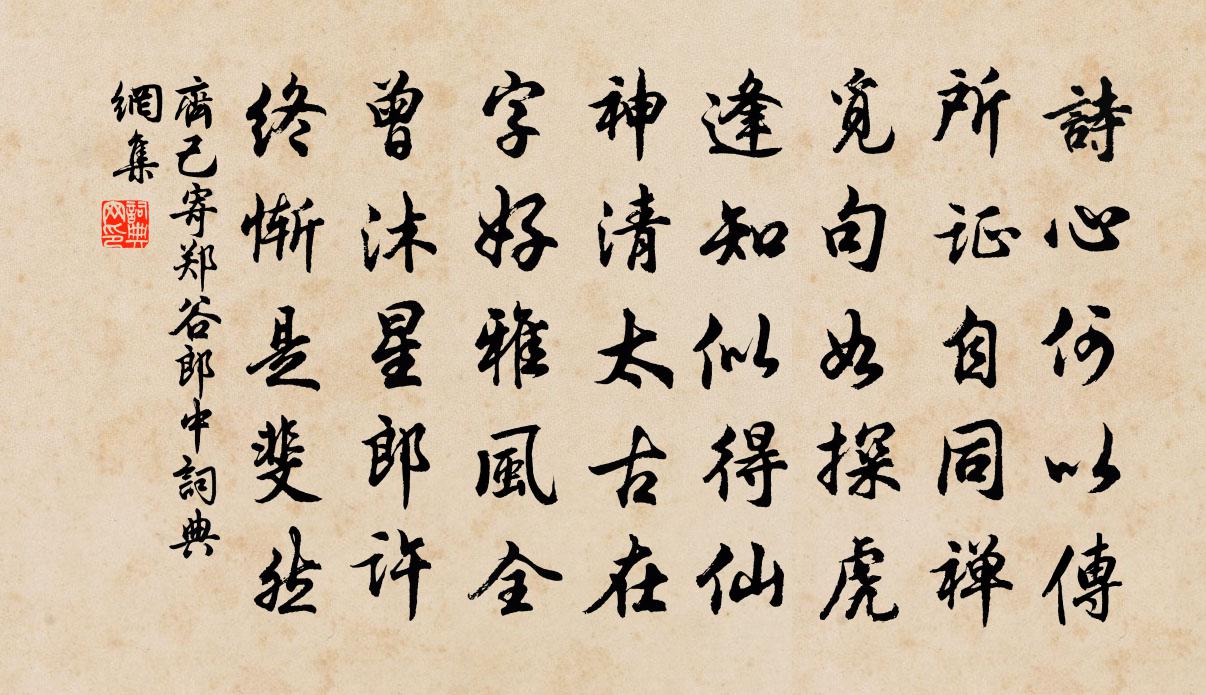 詩心何以傳
所证自同禅
覓句如探虎
逢知似得仙
神清太古在
字好雅風全
曾沐星郎許
终慚是斐然
齊己寄郑谷郎中詞典
網集
詞典
网印